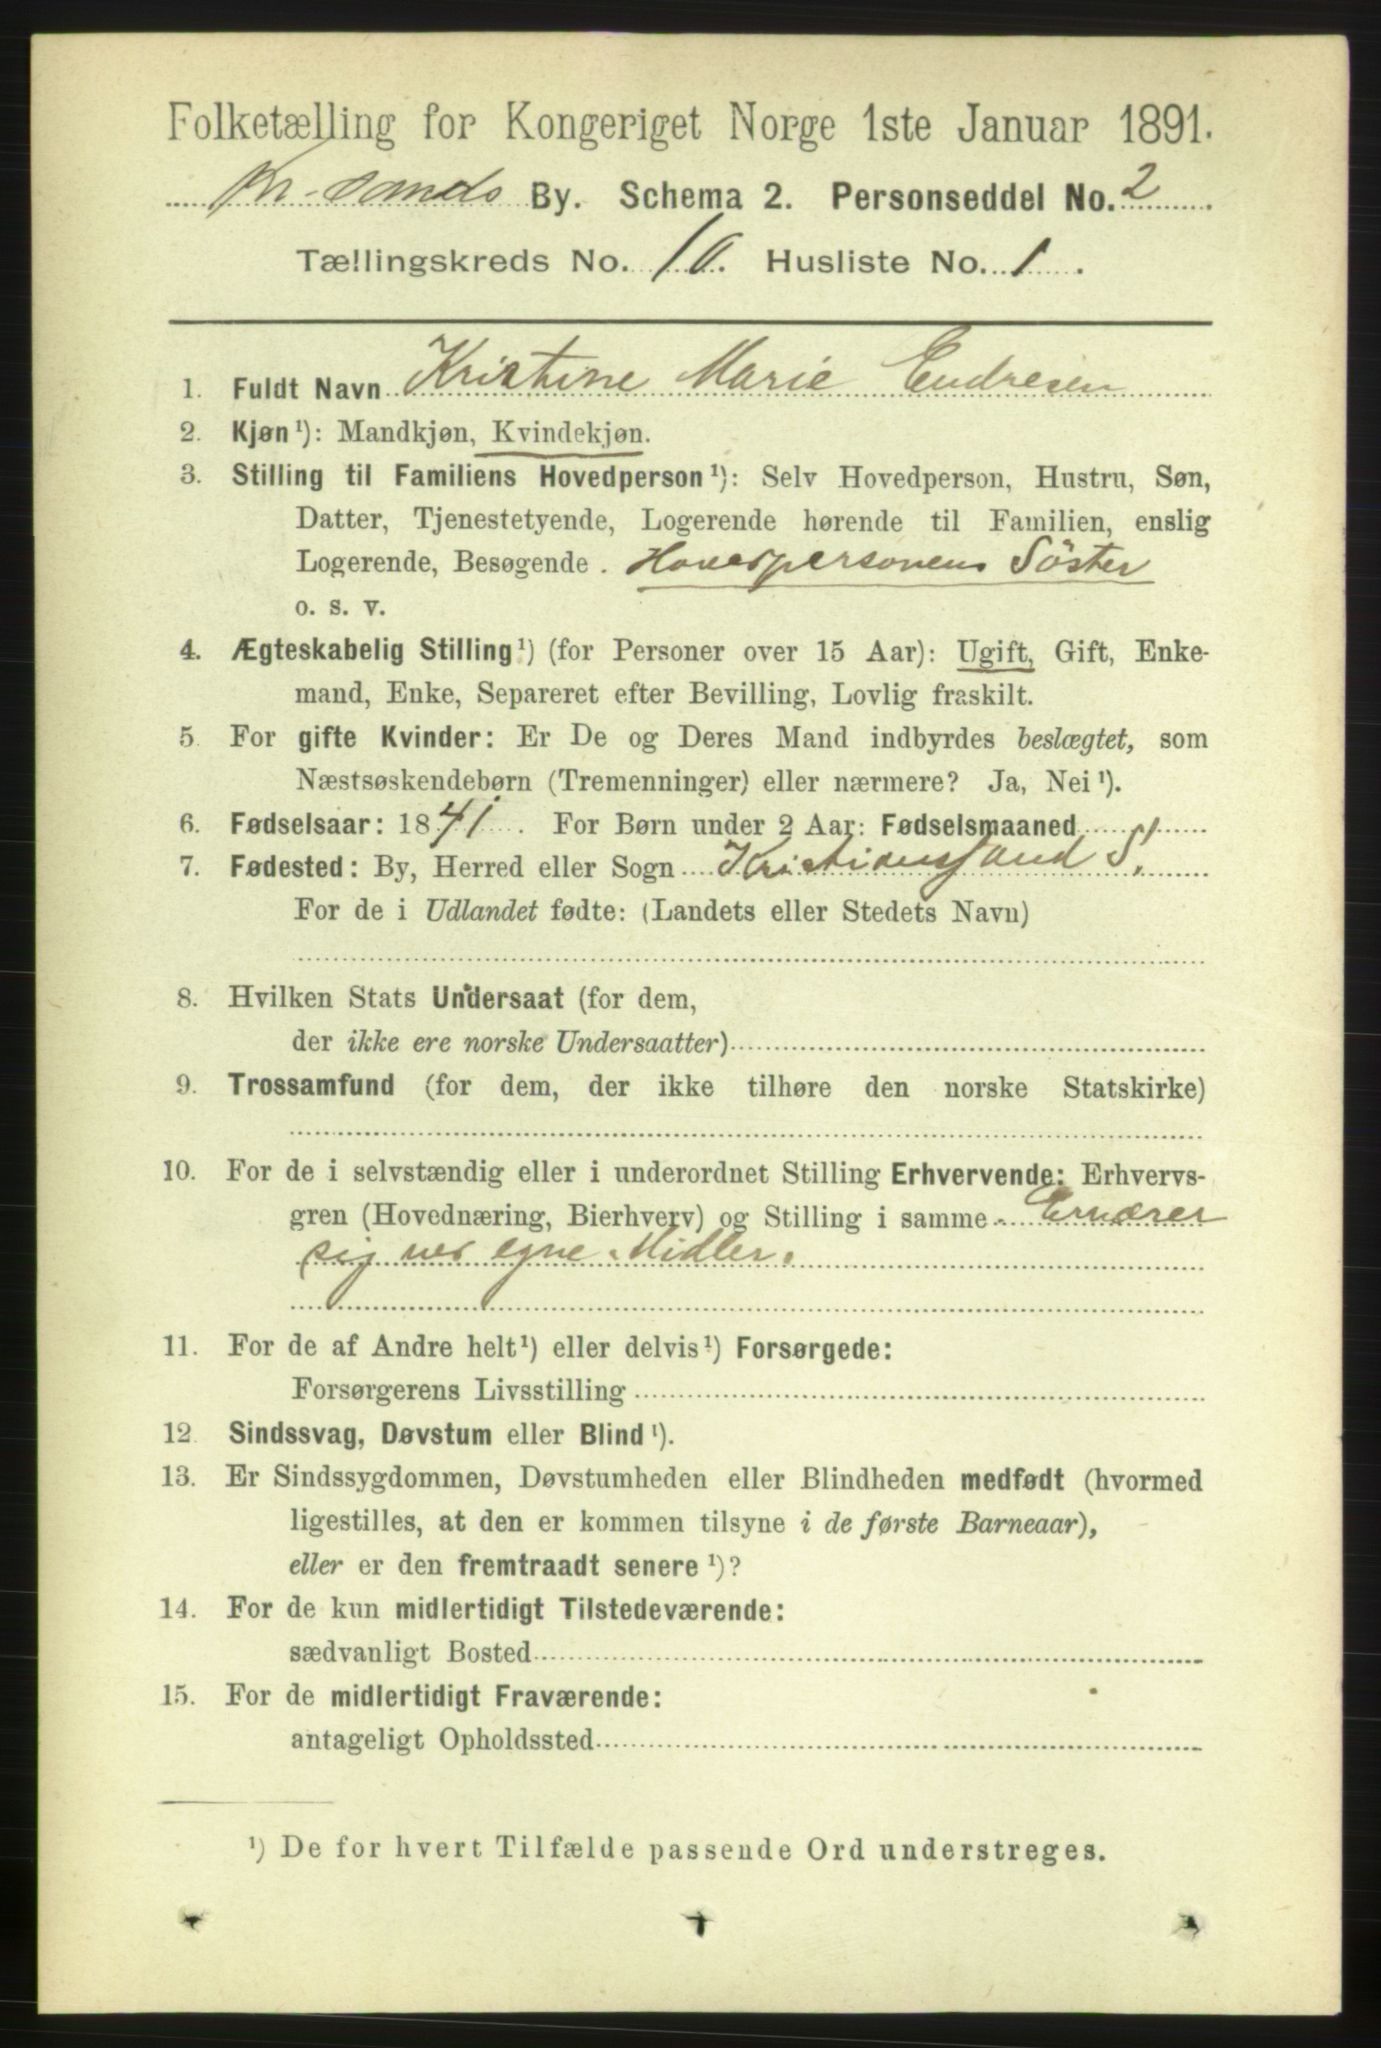 Folketælling for Kongeriget Norge 1ste Januar 1891.
Kr-sands By. Schema 2. Personseddel No. 2
Tællingskreds No. 10. Husliste No. 1.
1. Fuldt Navn Kristine Marie Endresen
2. Kjøn¹): Mandkjøn, Kvindekjøn.
3. Stilling til Familiens Hovedperson¹): Selv Hovedperson, Hustru, Søn,
Datter, Tjenestetyende, Logerende hørende til Familien, enslig
Logerende, Besøgende. Hovedpersonens Söster
o. s. v.
4. Ægteskabelig Stilling¹) (for Personer over 15 Aar): Ugift, Gift, Enke-
mand, Enke, Separeret efter Bevilling, Lovlig fraskilt.
5. For gifte Kvinder: Er De og Deres Mand indbyrdes beslægtet, som
Næstsøskendebørn (Tremenninger) eller nærmere? Ja, Nei¹).
6. Fødselsaar: 1841. For Børn under 2 Aar: Fødselsmaaned
7. Fødested: By, Herred eller Sogn Kristianssand S!
For de i Udlandet fødte: (Landets eller Stedets Navn)
8. Hvilken Stats Undersaat (for dem,
der ikke ere norske Undersaatter)
9. Trossamfund (for dem, der ikke tilhøre den norske Statskirke)
10. For de i selvstændig eller i underordnet Stilling Erhvervende: Erhvervs-
gren (Hovednæring, Bierhverv) og Stilling i samme Ernærer
sig ved egne Midler.
11. For de af Andre helt¹) eller delvis¹) Forsørgede:
Forsørgerens Livsstilling
12 Sindssvag, Døvstum eller Blind¹).
13. Er Sindssygdommen, Døvstumheden eller Blindheden medfødt (hvormed
ligestilles, at den er kommen tilsyne i de første Barneaar),
eller er den fremtraadt senere¹)?
14. For de kun midlertidigt Tilstedeværende:
sædvanligt Bosted
15. For de midlertidigt Fraværende:
antageligt Opholdssted
¹) De for hvert Tilfælde passende Ord understreges.